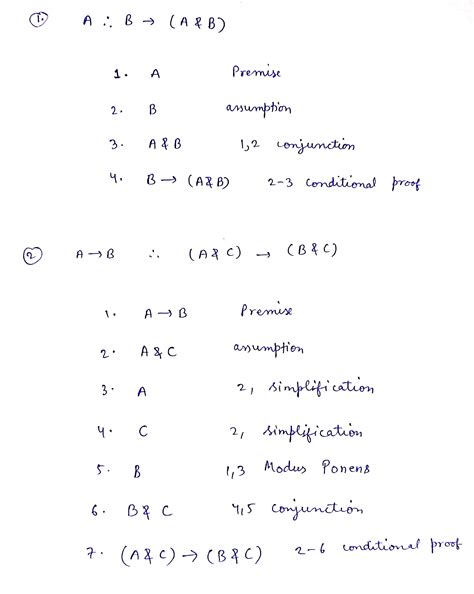 1. A ∴ B → (A & B)
1. A Premise
2. B assumption
3. A & B 1,2 conjunction
4. B → (A & B) 2-3 conditional proof
2. A → B ∴ (A & C) → (B & C)
1. A → B Premise
2. A & C assumption
3. A 2, simplification
4. C 2, simplification
5. B 1,3 Modus Ponens
6. B & C 4,5 conjunction
7. (A & C) → (B & C) 2-6 conditional proof